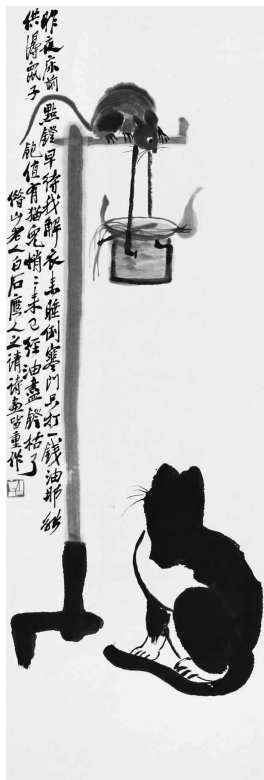 昨夜床前點鐙早待我解衣來睡倒寒門只打一錢油那能
供得鼠子飽值有猫兒悄〻來已經油盡鐙枯了
借山老人白石應人之請請畫皆重作